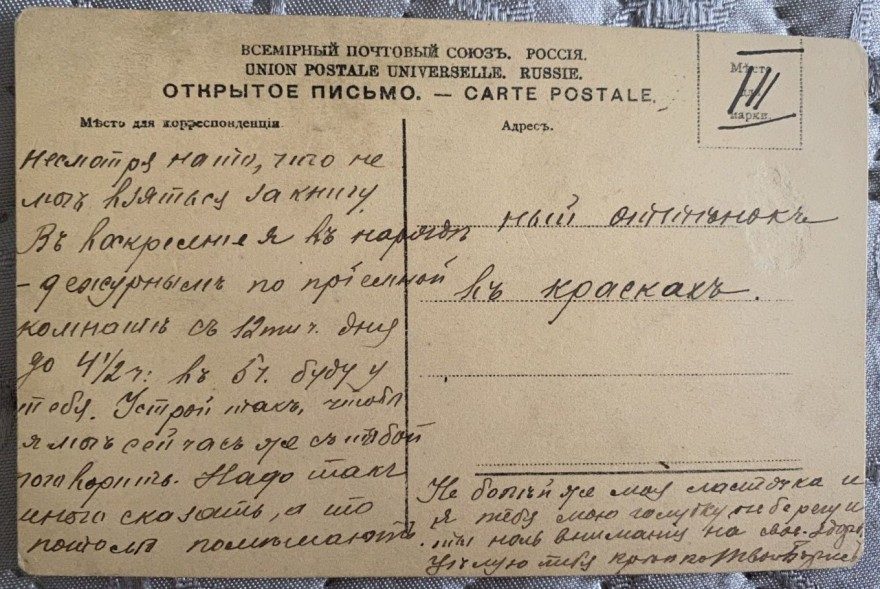 ВСЕМІРНЫЙ ПОЧТОВЫЙ СОЮЗЪ. РОССІЯ.
UNION POSTALE UNIVERSELLE. RUSSIE.
ОТКРЫТОЕ ПИСЬМО. — CARTE POSTALE.
Мѣсто для марки.
III
Мѣсто для корреспонденціи
Адресъ.
Несмотря на то, что не
могъ взяться за книгу
Въ воскресеніе я въ нарядѣ
- дежурнымъ по пріемной
комнатѣ съ 12ти ч. дня
до 4 1/2 ч: въ 5 ч. буду у
тебя. Устрой такъ, чтобы
я могъ сейчасъ же съ тобой
поговорить. Надо такъ
много сказать, а то
потомъ помѣшаютъ.
ный оттѣнокъ
въ краскахъ.
Не болѣй же моя ласточка и
я тебя мою голубку не берегу и
ты ноль вниманія на свое
Цѣлую тебя крѣпко Твой